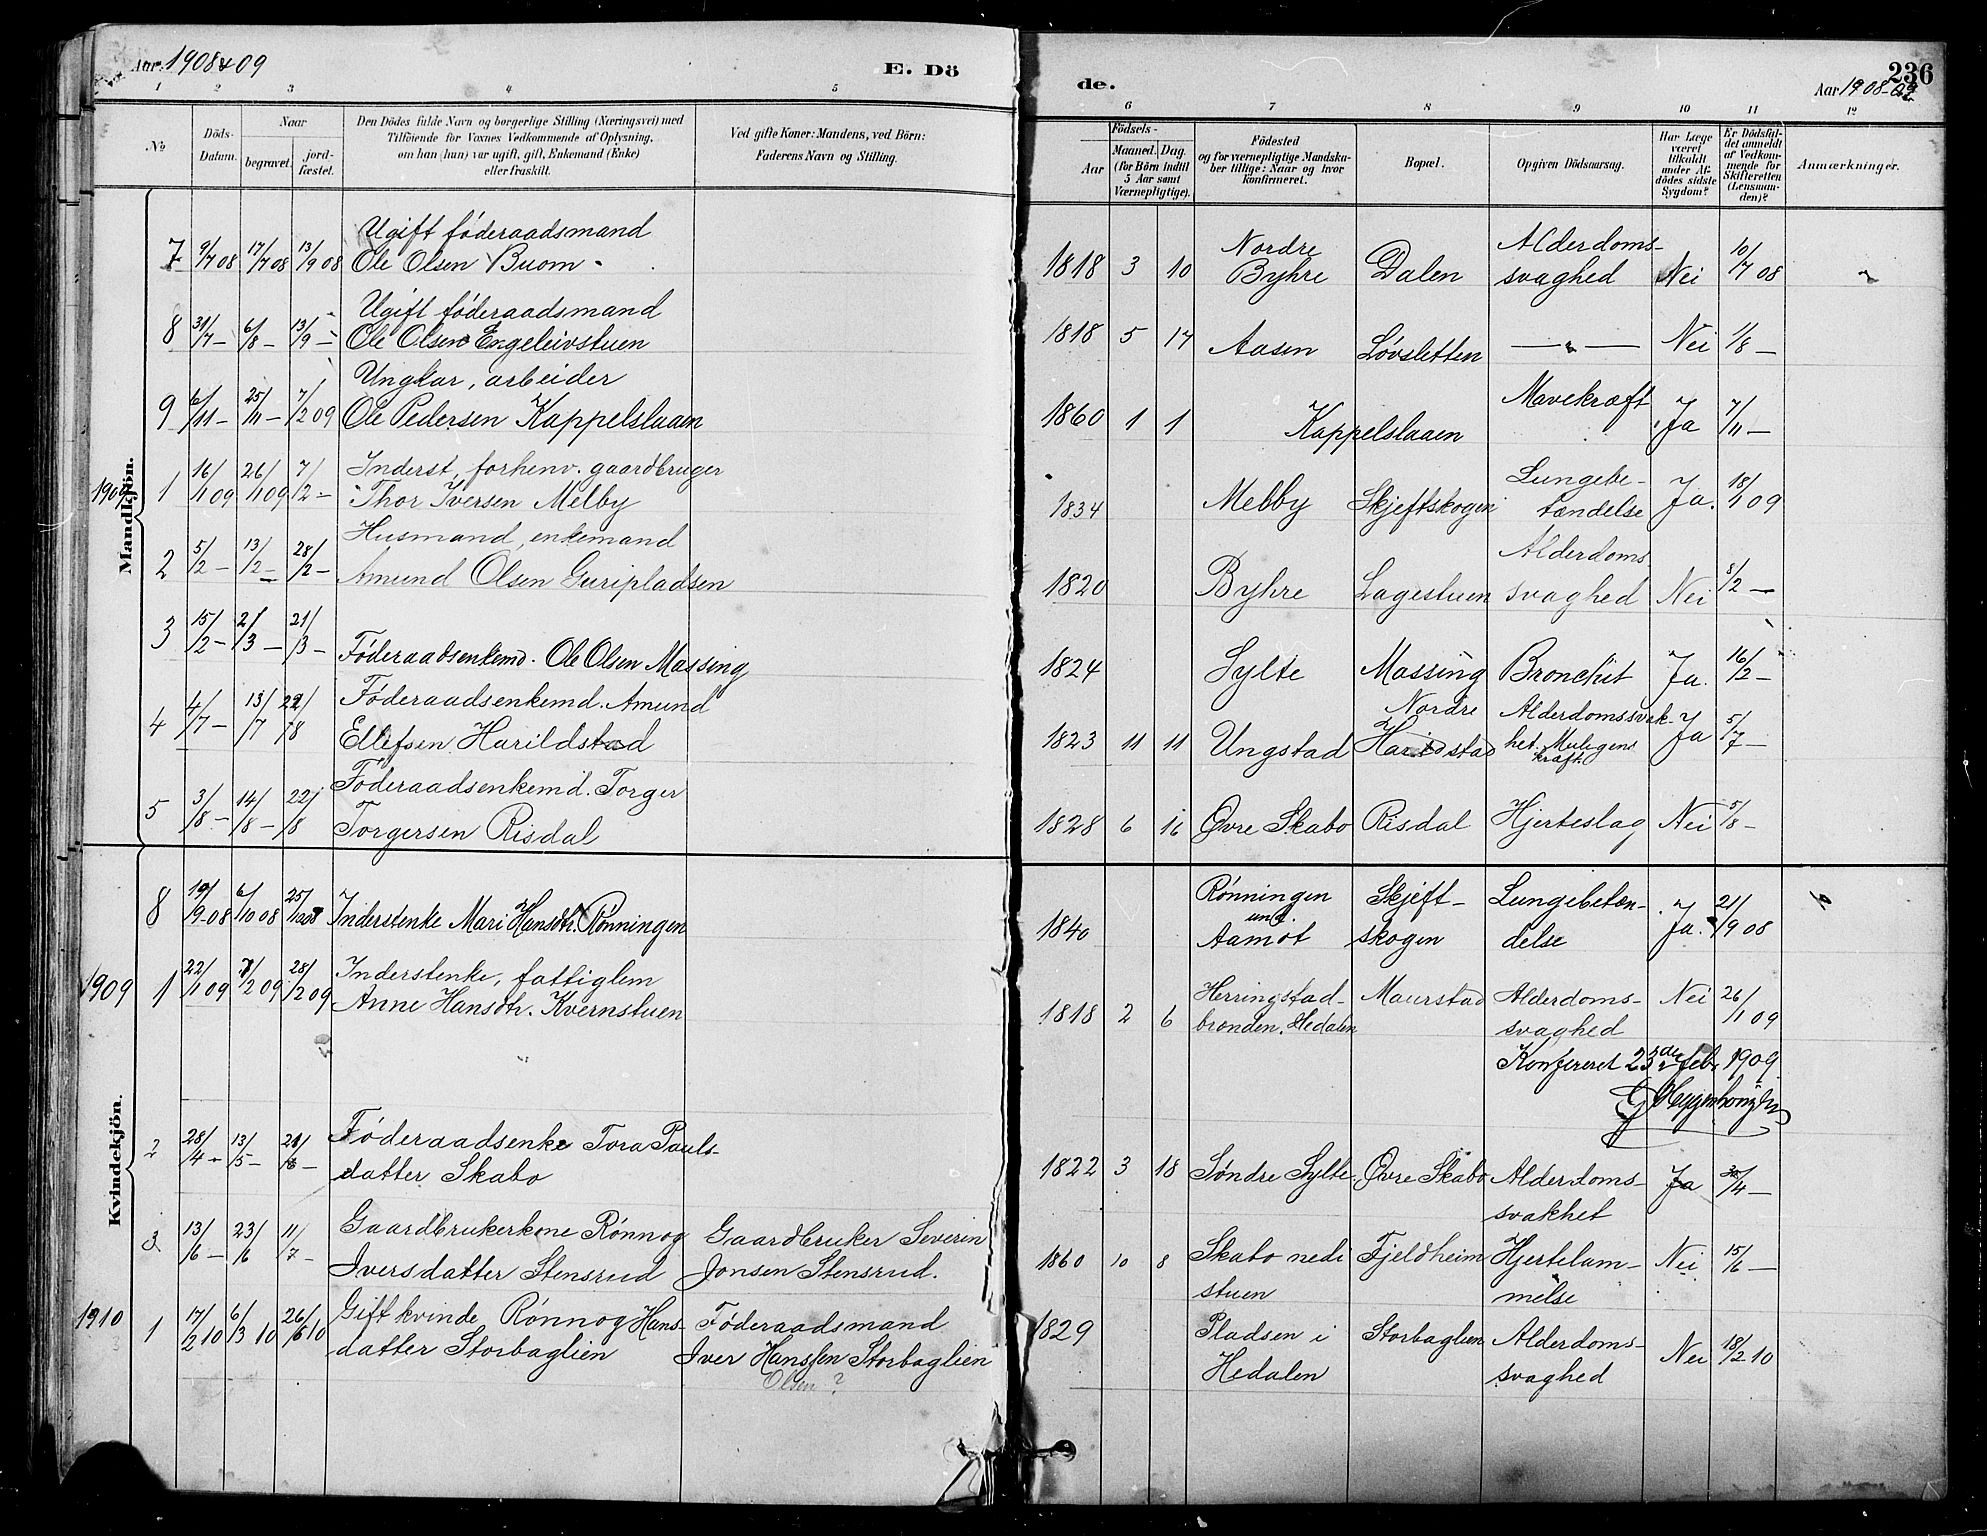 Aar 1908 & 09
E. Dö
de.
Aar 1908-09
236
1 2 3 4 5 6 7 8 9 10 11 12
No
Döds-Datum.
Naar
begravet.
jord-fæstet.
Den Dödes fulde Navn og borgerlige Stilling (Næringsvei) med
Tilföiende for Voxnes Vedkommende af Oplysning,
om han (hun) var ugift, gift, Enkemand (Enke)
eller fraskilt.
Ved gifte Koner: Mandens, ved Börn:
Faderens Navn og Stilling.
Födsels-
Aar
Maaned. Dag.
(for Börn indtil
5 Aar samt
Værnepligtige).
Födested
og for værnepligtige Mandska-
ber tillige: Naar og hvor
konfirmeret.
Bopæl.
Opgiven Dödsaarsag.
Har Læge
været
tilkaldt
under Af-
dödes sidste
Sygdom?
Er Dödsfal-
det anmeldt
af Vedkom-
mende for
Skifteretten
(Lensman-
den)?
Anmærkninger.
Mandkjön.
7 9/7 08 17/7 08 13/9 08 Ugift föderaadsmand
Ole Olsen Buom 1818 3 10 Nordre Byhre Dalen Alderdoms-svaghed Nei 10/7 08
8 31/7 – 6/8 – 13/9 – Ugift föderaadsmand
Ole Olsen Engeleivstuen 1818 5 17 Aasen Løvsletten — „ — Nei 1/8 –
9 6/11 – 25/11 – 7/2 09 Ungkar, arbeider
Ole Pedersen Kappelslaaen 1860 1 1 Kappelslaaen Mavekræft Ja 7/11 –
1909
1 16/1 09 26/1 09 7/2 – Inderst, forhenv. gaardbruger
Thor Iversen Melby 1834 Melby Skjeftskogen Lungebe-tændelse Ja. 18/1 09
2 5/2 – 13/2 – 28/2 – Husmand, enkemand
Amund Olsen Guripladsen 1820 Byhre Lagestuen Alderdoms svaghed Nei 8/2 –
3 15/2 – 2/3 – 21/3 – Föderaadsenkemd. Ole Olsen Massing 1824 Sylte Massing Bronchit Ja. 16/2 –
4 4/7 – 13/7 22/8 Föderaadsenkemd. Amund
Ellefsen Harildstad 1823 11 11 Ungstad Nordre Harildstad Alderdomssvak-het. Muligens kræft. Ja 5/7 –
5 3/8 – 14/8 – 22/8 Föderaadsenkemd. Torger
Torgersen Risdal 1828 6 16 Øvre Skabo Risdal Hjerteslag Nei 5/8 –
Kvindekjön.
8 19/9 08 6/10 08 25/10 08 Inderstenke Mari Hansdtr. Rønningen 1840 Rønningen und. Aamot Skjeft-skogen Lungebetæn-delse Ja. 21/9 08
1909
1 22/1 09 7/2 09 28/2 09 Inderstenke, fattiglem
Anne Hansdtr. Kvernstuen 1818 2 6 Herringstad-brænden, Hedalen Maurstad Alderdoms-svaghed Nei 26/1 09
Konfereret 23de febr. 1909
2 28/4 – 13/5 – Föderaadsenke Tora Pauls-
datter Skabo 1822 3 18 Søndre Sylte Øvre Skabo Alderdoms-svakhet Ja 30/4 –
3 13/6 – 23/6 11/7 – Gaardbrukerkone Rønnog
Iversdatter Stensrud Gaardbruker Severin
Jonsen Stensrud. 1860 10 8 Skabo nedi stuen Fjeldheim Hjertelam-melse Nei 15/6 –
1910
1 17/2 10 6/3 10 26/6 10 Gift kvinde Rønnog Hans-
datter Storbaglien Föderaadsmand
Iver Hanssen Storbaglien
Olsen? 1829 Pladsen i Hedalen Storbaglien Alderdoms-svaghed Nei 18/2 10